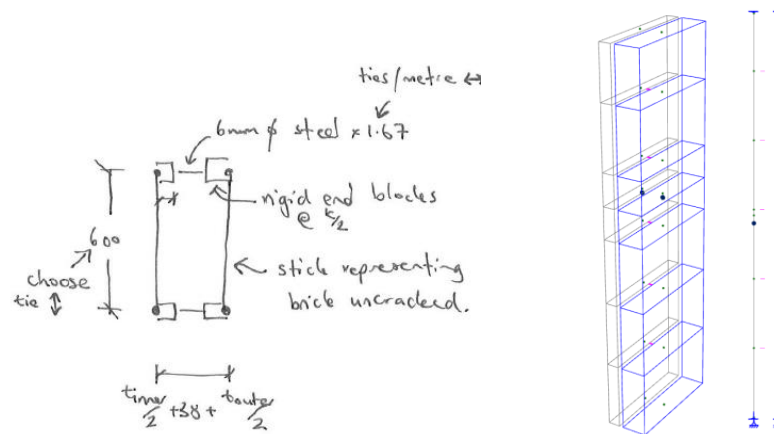 ties/metre ↔
6mm φ steel × 1.67
rigid end blocks
@ t/2
600
choose
tie ↕
stick representing
brick uncracked.
tinner/2 + 38 + touter/2